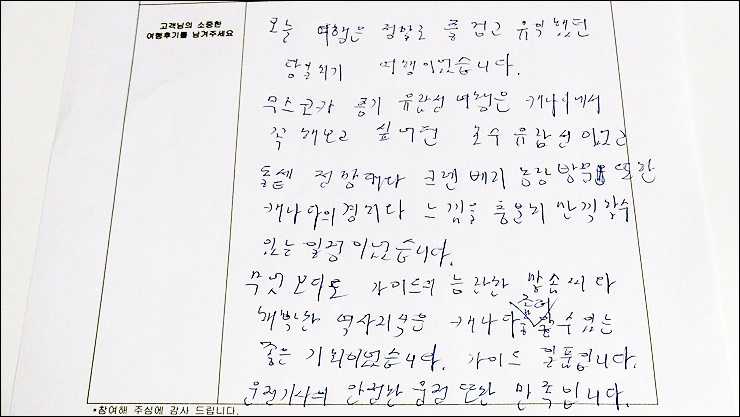 고객님의 소중한
여행후기를 남겨주세요
오늘 여행은 정말로 즐겁고 유익했던
당일치기 여행이었습니다.
무스코카 증기 유람선 여행은 캐나다에서
꼭 해보고 싶어던 호수 유람선 이였고
돌셑 전망대와 크렌베리 농장 방문 또한
캐나다의 경치와 느낌을 충분히 만끽할수
있는 일정이었습니다.
무엇보다도 가이드의 능란한 말솜씨와
해박한 역사지식은 캐나다 알수있는
좋은 기회이었습니다. 가이드 일품입니다.
운전기사의 안전한 운전 또한 만족입니다.
*참여해 주심에 감사 드립니다.